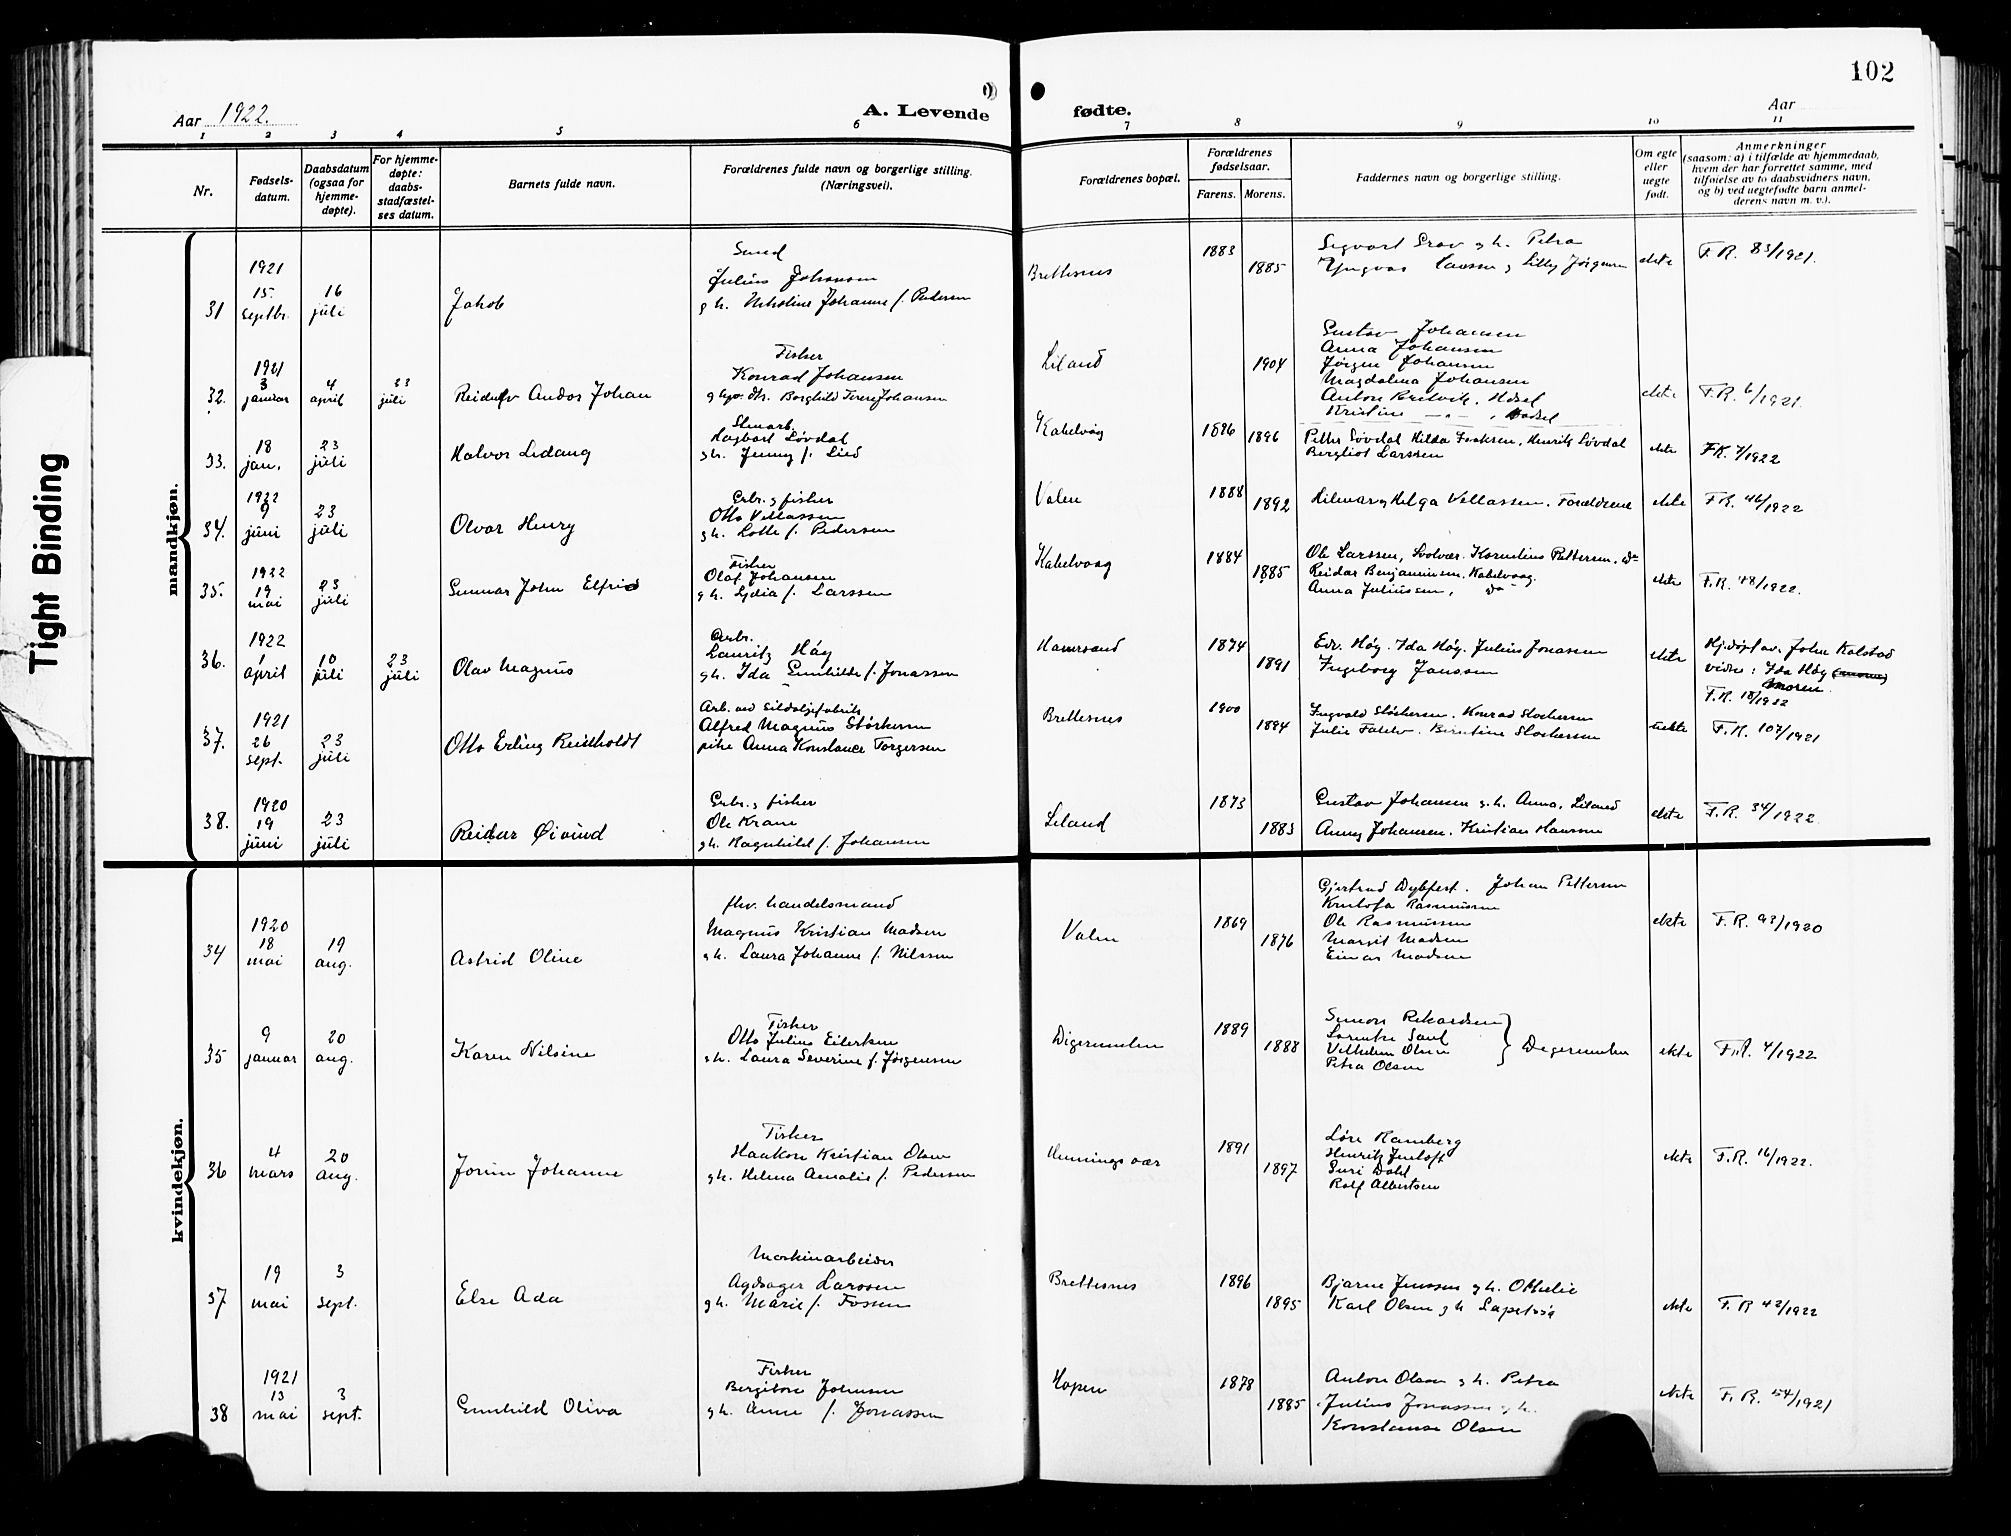 102
Aar 1922.
A. Levende fødte.
Aar
1 2 3 4 5 6 7 8 9 10 11
Nr.
Fødsels-
datum.
Daabsdatum
(ogsaa for
hjemme-
døpte).
For hjemme-
døpte:
daabs-
stadfæstel-
ses datum.
Barnets fulde navn.
Forældrenes fulde navn og borgerlige stilling.
(Næringsvei).
Forældrenes bopæl.
Forældrenes
fødselsaar.
Farens. Morens.
Faddernes navn og borgerlige stilling.
Om egte
eller
uegte
født.
Anmerkninger
(saasom: a) i tilfælde av hjemmedaab,
hvem der har forrettet samme, med
tilføielse av to daabsvidners navn,
og b) ved uegtefødte barn anmel-
derens navn m. v.).
Tight Binding
mandkjøn.
31
1921
15.
septbr.
16
juli
Jakob
Smed
Julius Johansen
g h. Nikoline Johanne f. Pedersen
Brettesnes
1883
1885
ekte
F. R. 83/1921.
32.
1921
3
januar
4
april
23
juli
Reidulv Andor Johan
Fisker
Konrad Johansen
Johansen
Liland
1904
Gustav Johansen
Anna Johansen
Jørgen Johansen
Magdalena Johansen
ekte
F. R. 6/1921.
33.
18
jan.
23
juli
Halvor Lidang
Hagbart Løvdal
gh. Jenny f. Lied
Kabelvåg
1896
1896
Petter Løvdal Hilda Isaksen, Henrik Løvdal
Bergliot Larssen
ekte
F.R. 7/1922
34.
1922
9
juni
23
juli
Olvar Henry
Grbr. g fisker
Otto Villassen
gh. Lotte f. Pedersen
Valen
1888
1892
Hilmar g Helga Villassen. Forældrene
ekte
F. R. 46/1922
35.
1922
19
mai
23
juli
Gunnar John Elfrid
Fisker
Olaf Johansen
g h. Lydia f. Larssen
Kabelvaag
1884
1885
Ole Larssen, Svolvær. Kornelius Pettersen, do
Reidar Benjaminsen, Kabelvaag.
Anna Juliussen, do
ekte
F.R. 48/1922.
36.
1922
1
april
10
juli
23
juli
Olav Magnus
Arb.
Lauritz Høg
gh. Ida Gunhilde f. Jonassen
1874
1891
Edv. Høg. Ida Høg. Julius Jonassen
Ingeborg Janssen
ekte
Hj.døpt av John Kalstad
vidne: Ida Høg
moren.
F. R. 18/1922
37.
1921
26
sept.
23
juli
Otto Erling Reinholdt
Arb. ved Sildoljefabrik
Alfred Magnus Størkersen
pike Anna Konstance Torgersen
Brettesnes
1900
1894
Ingvald Størkersen. Konrad Størkersen
uekte
F. R. 107/1921
38.
1920
19
juni
23
juli
Reidar Øivind
Grbr. g fisker
Ole Krane
gh. Ragnhild f. Johansen
Liland
1873
1883
Gustav Johansen g h. Anna, Liland
Anny Johansen. Kristian Hanssen
ekte
F. R. 34/1922
kvindekjøn.
34
1920
18
mai
19
aug.
Astrid Oline
fhv. handelsmand
Magnus Kristian Madsen
gh. Laura Johanne f. Nilssen
Valen
1869
1876
Gjertrud Dybfest. Johan Pettersen
Kristofa Rasmussen
Ole Rasmussen
Margit Madsen
Einar Madsen
ekte
F. R. 93/1920
35
9
januar
20
aug.
Karen Nilsine
Fisker
Otto Julius Eilertsen
gh. Laura Severine f. Jørgensen
Digermulen
1889
1888
Simon Rikardsen
Vilhelm Olsen
Petra Olsen
Digermulen
ekte
F.R. 4/1922
36
4
mars
20
aug.
Jorun Johanne
Fisker
Haakon Kristian Olsen
gh. Helma Amalie f. Pedersen
Henningsvær
1891
1897
Løre Ramberg
Guri Dahl
Rolf Albertsen
ekte
F. R. 16/1922.
37
19
mai
3
sept.
Else Ada
Maskinarbeider
Larssen
g h. Marie f. Fossen
Brettesnes
1896
1895
Bjarne Jenssen g h. Othelie
Karl Olsen g h
ekte
F. R 42/1922
38
1921
13
mai
3
sept.
Gunhild Oliva
Fisker
Bergiton Johnsen
gh. Anna f. Jonassen
Hopen
1878
1885
Anton Olsen g h. Petra
Julius Jonassen g h.
Konstanse Olsen
ekte
F. R. 54/1921